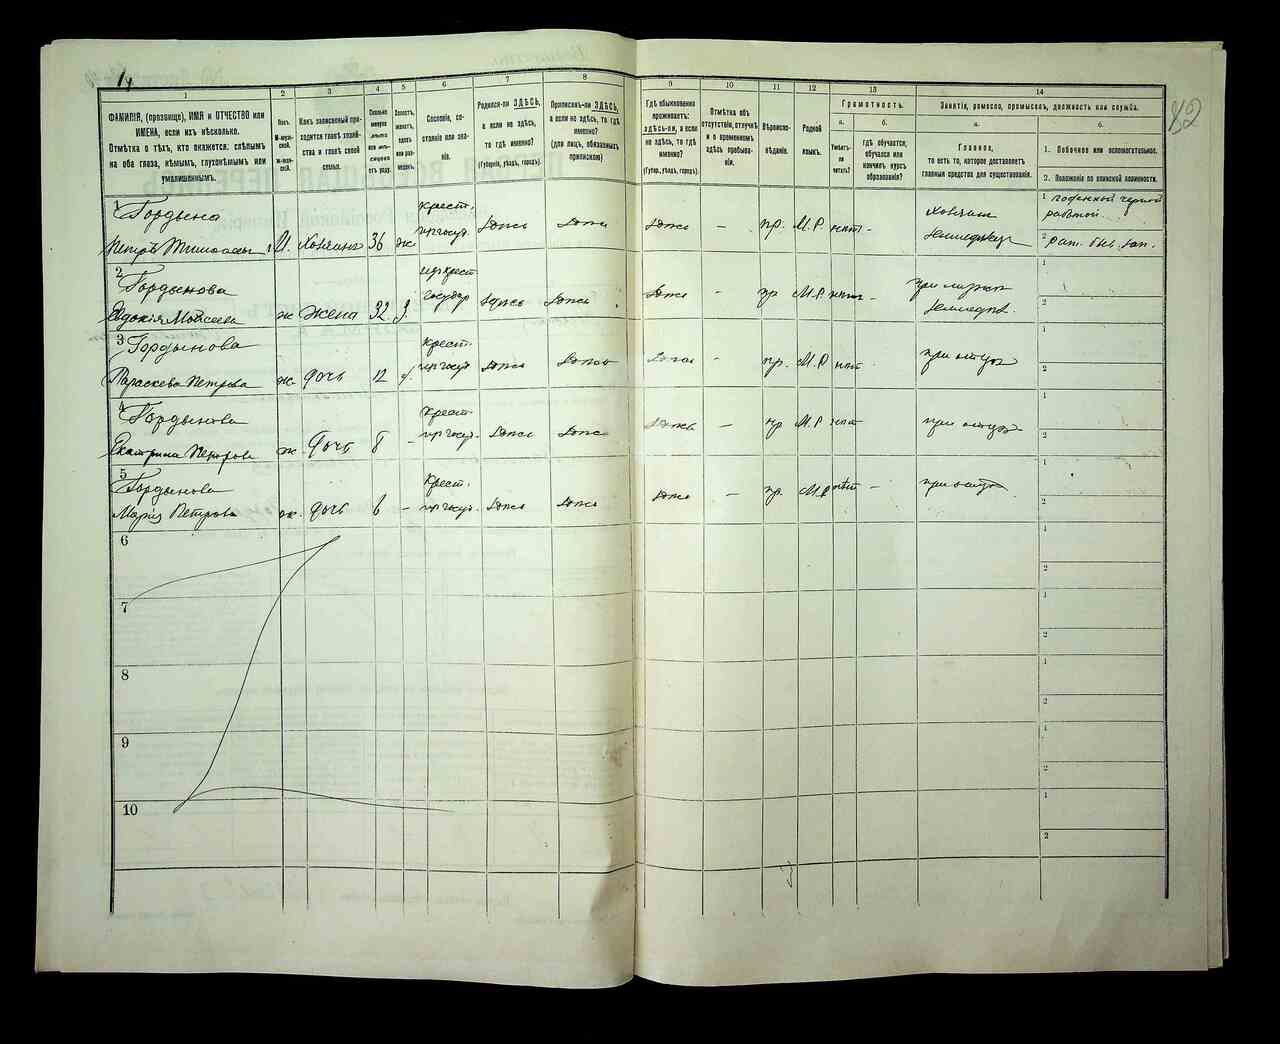 14
82
1
2
3
4
5
6
7
8
9
10
11
12
13
14
ФАМИЛІЯ, (прозвище), ИМЯ и ОТЧЕСТВО или
ИМЕНА, если ихъ нѣсколько.
Отмѣтка о тѣхъ, кто окажется: слѣпымъ
на оба глаза, нѣмымъ, глухонѣмымъ или
умалишеннымъ.
Полъ.
М-муж-
ской.
Ж-жен-
скій.
Какъ записанный при-
ходится главѣ хозяй-
ства и главѣ своей
семьи.
Сколько
минуло
лѣтъ
или мѣ-
сяцевъ
отъ роду.
Холостъ,
женатъ,
вдовъ
или раз-
веденъ.
Сословіе, со-
стояніе или зва-
ніе.
Родился-ли ЗДѢСЬ,
а если не здѣсь,
то гдѣ именно?
(Губернія, уѣздъ, городъ).
Приписанъ-ли ЗДѢСЬ,
а если не здѣсь, то гдѣ
именно?
(для лицъ, обязанныхъ
припискою)
Гдѣ обыкновенно
проживаетъ:
здѣсь-ли, а если
не здѣсь, то гдѣ
именно?
(Губер., уѣздъ, городъ).
Отмѣтка объ
отсутствіи, отлучкѣ
и о временномъ
здѣсь пребыва-
ніи.
Вѣроиспо-
вѣданіе.
Родной
языкъ.
Грамотность.
а.
Умѣетъ-
ли
читать?
б.
гдѣ обучается,
обучался или
кончилъ курсъ
образованія?
Занятіе, ремесло, промыселъ, должность или служба.
а.
Главное,
то есть то, которое доставляетъ
главныя средства для существованія.
б.
1. Побочное или вспомогательное.
2. Положеніе по воинской повинности.
1
Гордына
Петръ
36
крест.
Здѣсь
Здѣсь
Здѣсь
–
пр.
М.Р.
нѣтъ –
1
работой
2
2
Гордынова
Евдокія Моисеева
ж
жена
32
Здѣсь
Здѣсь
Здѣсь
–
пр
М.Р.
нѣтъ –
1
2
3
Гордынова
Параскева Петрова
ж
дочь
12
крест.
Здѣсь
Здѣсь
Здѣсь
–
пр.
М.Р
нѣтъ
при отцѣ
1
2
4
Гордынова
Екатерина Петрова
ж
дочь
8
–
крест.
Здѣсь
Здѣсь
Здѣсь
–
пр
М.Р
нѣтъ –
при отцѣ
1
2
5
Гордынова
Марія Петрова
ж.
дочь
6
–
крест.
Здѣсь
Здѣсь
Здѣсь
–
пр.
М.Р
нѣтъ –
при отцѣ
1
2
6
1
2
7
1
2
8
1
2
9
1
2
10
1
2